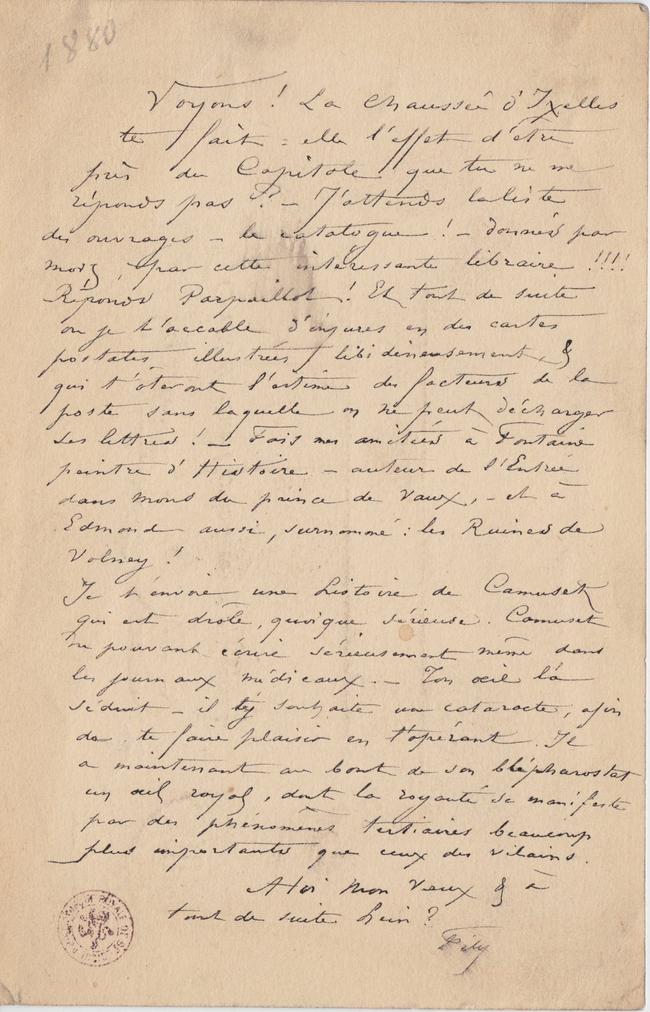 1880
Voyons ! La Chaussée d'Ixelles
te fait = elle l'effet d'être
près du Capitole que tu ne me
réponds pas ? — J'attends la liste
des ouvrages — le catalogue ! — donnés par
moi, par cette intéressante libraire !!!!
Réponds Parpaillot ! Et tout de suite
ou je t'accable d'injures en des cartes
postales illustrées libidineusement, &
qui t'ôteront l'estime des facteurs de la
poste sans laquelle on ne peut décharger
ses lettres ! — Fais mes amitiés à Fontaine
peintre d'Histoire — auteur de l'Entrée
dans Mons du prince de Vaux, — et à
Edmond aussi, surnommé : les Ruines de
Volney !
Je t'envoie une histoire de Camuset
qui est drôle, quoique sérieuse. Camuset
ne pouvant écrire sérieusement même dans
les journaux médicaux. — Ton œil l'a
séduit — il t'y souhaite une cataracte, afin
de te faire plaisir en t'opérant. Il
a maintenant au bout de son blépharostat
un œil royal, dont la royauté se manifeste
par des phénomènes tertiaires beaucoup
plus importants que ceux des vilains.
A toi mon vieux & à
tout de suite hein ?
Fély